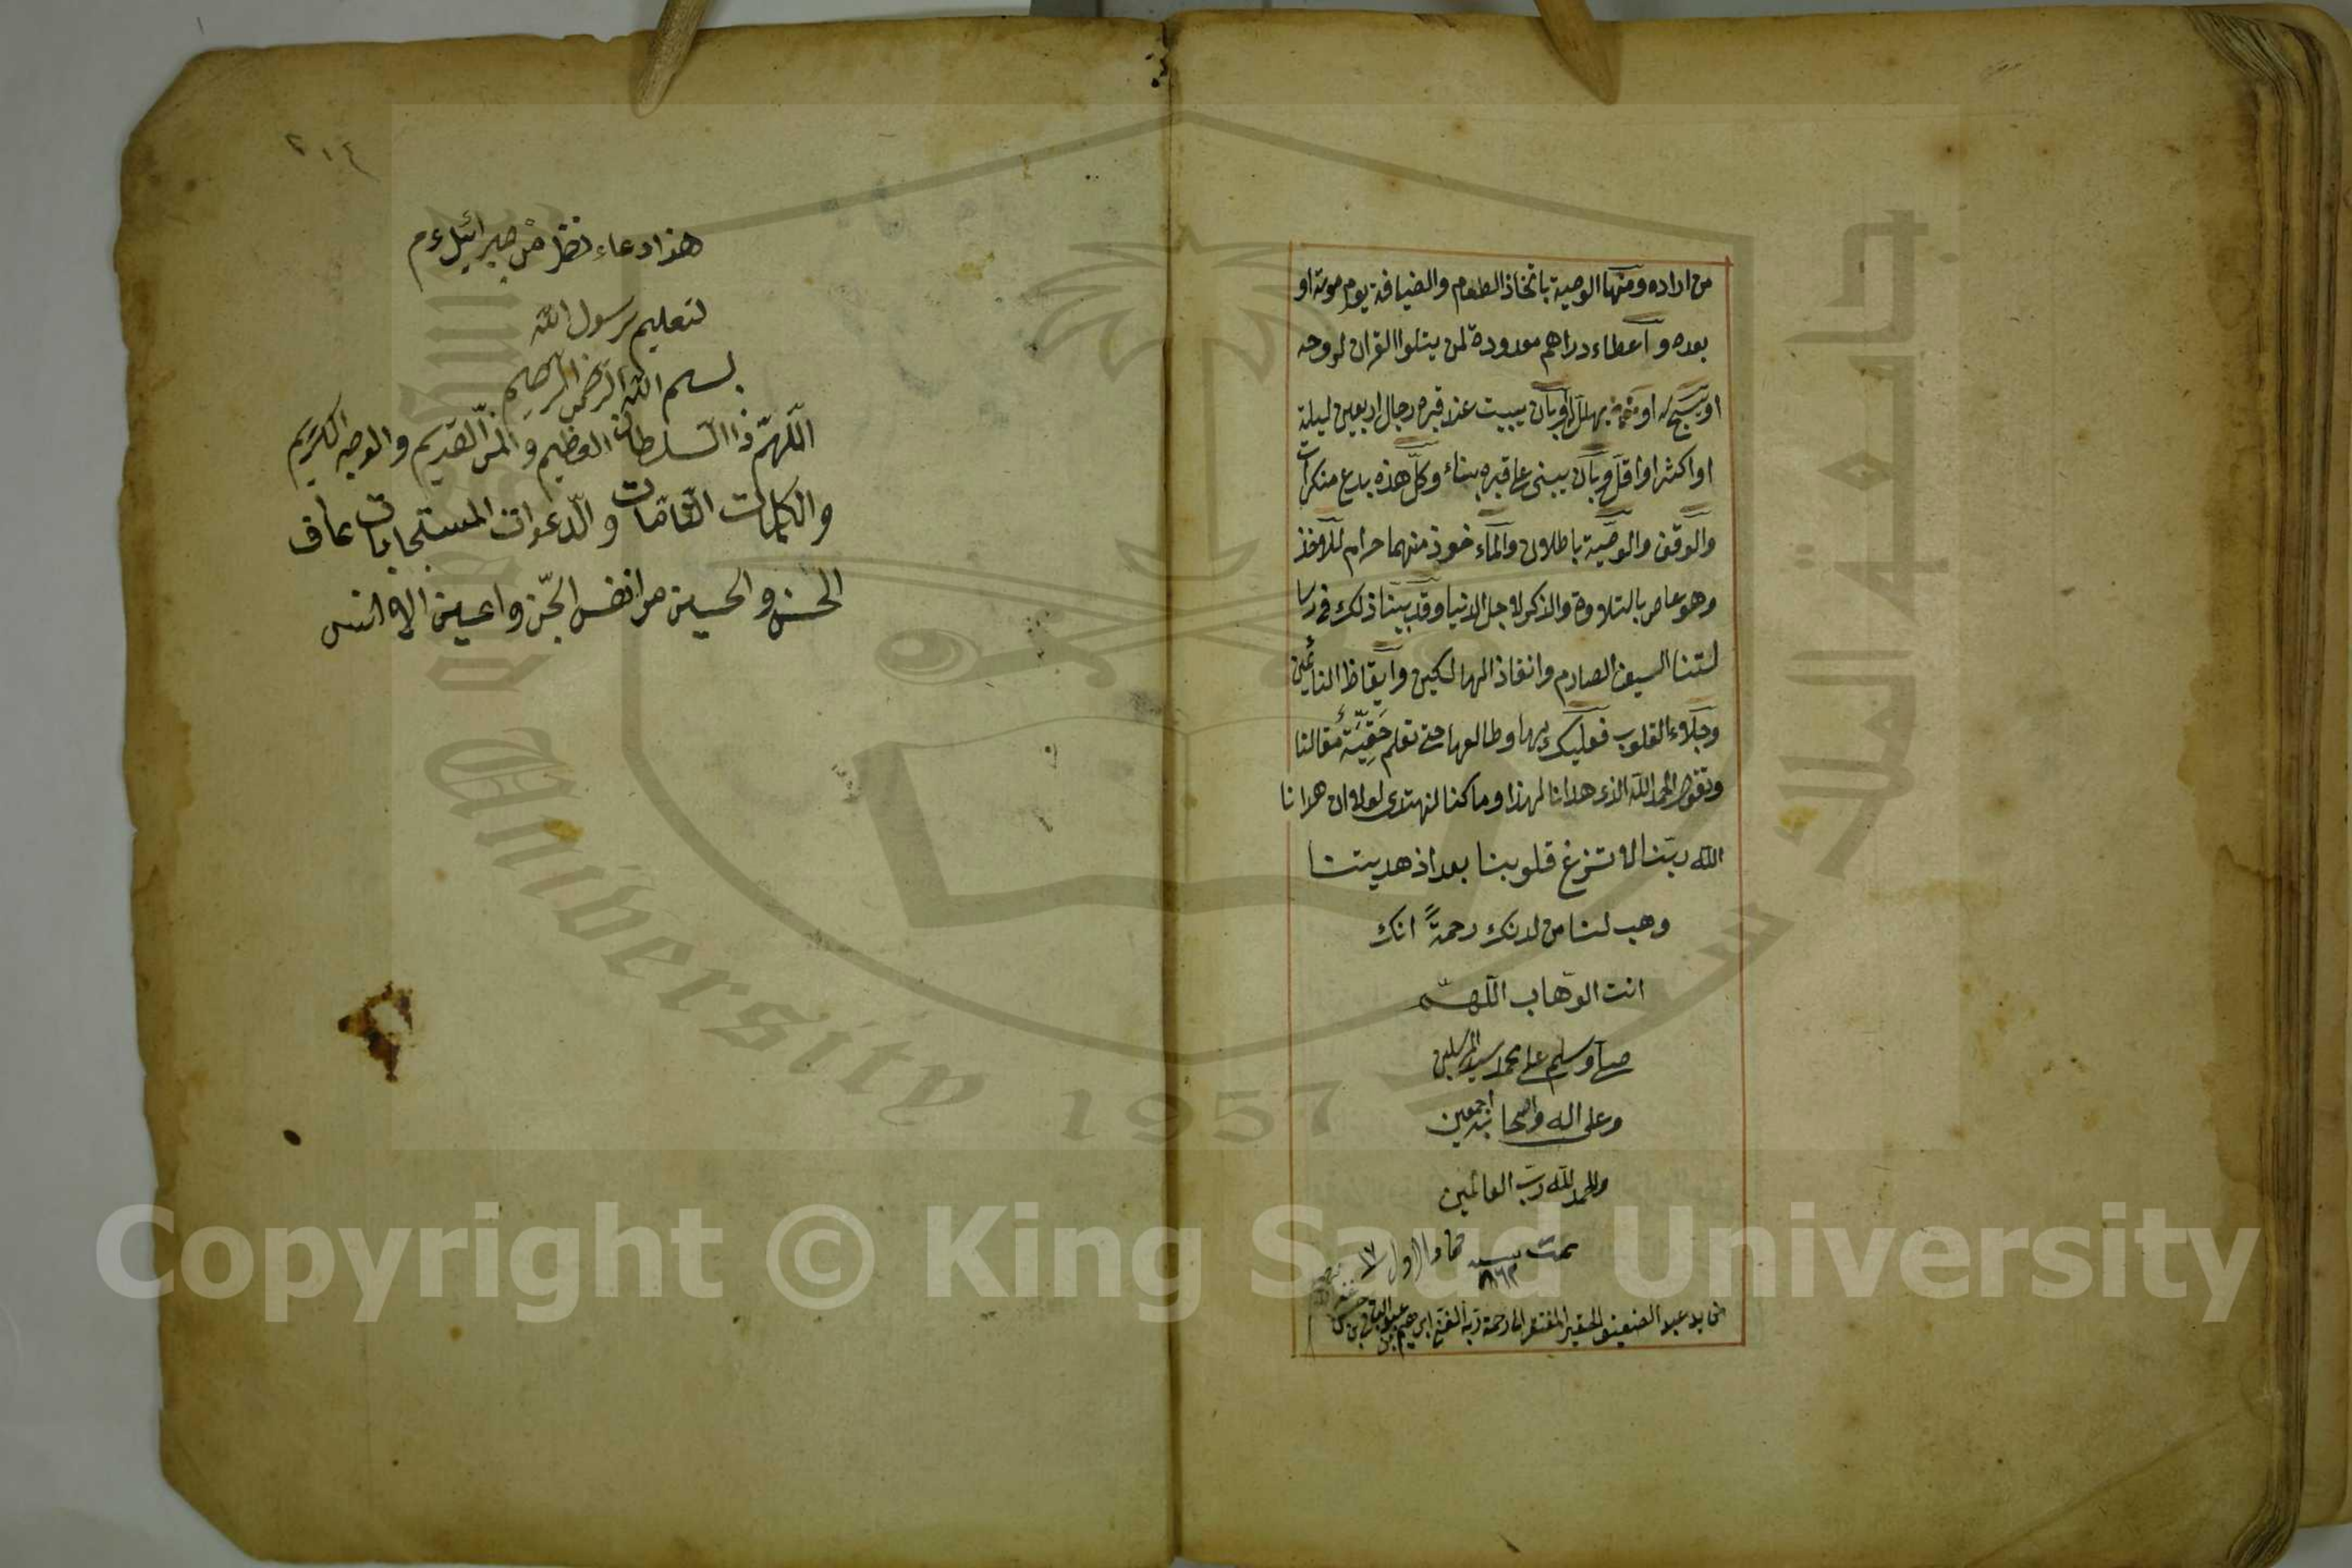 من اراده ومنها الوصية باتخاذ الطعام والضيافة يوم موته او
بعده واعطاء دراهم معدودة لمن يتلوا القران لروحه
او يسبح له او يهلل له او بان يبيت عند قبره رجال اربعين ليلة
او اكثر او اقل وبان يبنى على قبره بناء وكل هذه بدع منكرات
والوقف والوصية باطلان والماءخوذ منهما حرام للآخذ
وهو عاص بالتلاوة والذكر لاجل الدنيا وقد بينا ذلك فى رسا
لتنا السيف الصارم وانقاذ الهالكين وايقاظ النائمين
وجلاء القلوب فعليك بها وطالعها حتى تعلم حَقِيَّةَ مقالنا
وتقول الحمد لله الذى هدانا لهذا وما كنا لنهتدى لولا ان هدانا
الله ربّنا لا تزغ قلوبنا بعد اذ هديتنا
وهب لنا من لدنك رحمةً انك
انت الوهّاب اللّهم
صل وسلم على محمد سيد المرسلين
وعلى اله واصحابه اجمعين
والحمد لله ربّ العالمين
تمت جمادا الاول ١٣
من يد عبد الضعيف الحقير المفتقر الى رحمة ربه الغنى ابرهيم بن
٢١٤
هذا دعاء نظر من جبرائيل ءم
لتعليم رسول الله
بسم الله الرحمن الرحيم
اللّهمّ ذا السّلطان العظيم والمنّ القديم والوجه الكريم
والكلمات التّامّات والدّعوات المستجابات عاف
الحسن والحسين من انفس الجنّ واعين الانس
جامعة الملك سعود
King Saud University 1957
Copyright © King Saud University